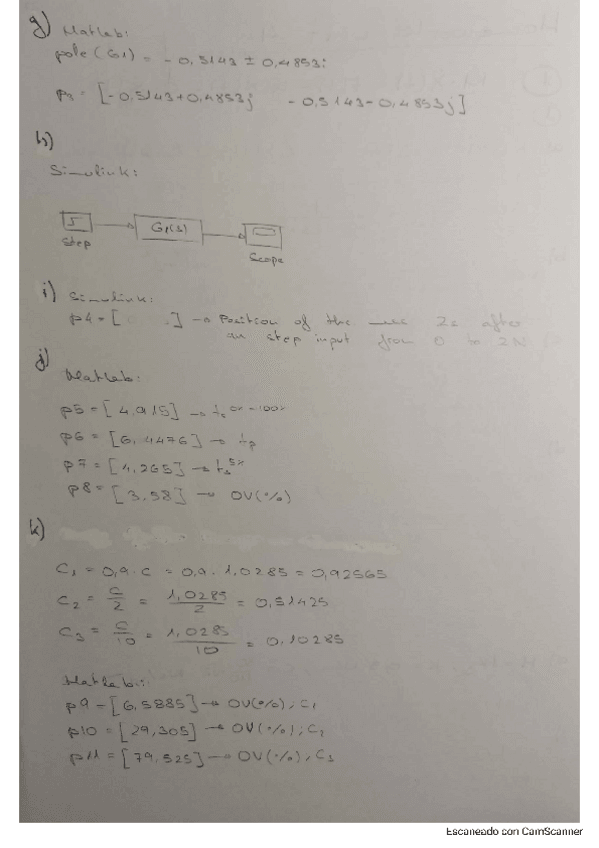 g) Matlab:
pole(G1) = -0,5143 ± 0,4853i
p3 = [-0,5143+0,4853j   -0,5143-0,4853j]
h)
Simulink:
G1(s)
Step
Scope
i) Simulink:
p4 = [ ] → Position of the 2s after
an step input from 0 to 2N
j)
Matlab:
p5 = [4,915] → ts 0%-100%
p6 = [6,4476] → tp
p7 = [4,265] → ts 5%
p8 = [3,58] → OV(%)
k)
C1 = 0,9·C = 0,9·1,0285 = 0,92565
C2 = C/2 = 1,0285/2 = 0,51425
C3 = C/10 = 1,0285/10 = 0,10285
Matlab:
p9 = [6,5885] → OV(%), C1
p10 = [29,305] → OV(%), C2
p11 = [79,525] → OV(%), C3
Escaneado con CamScanner